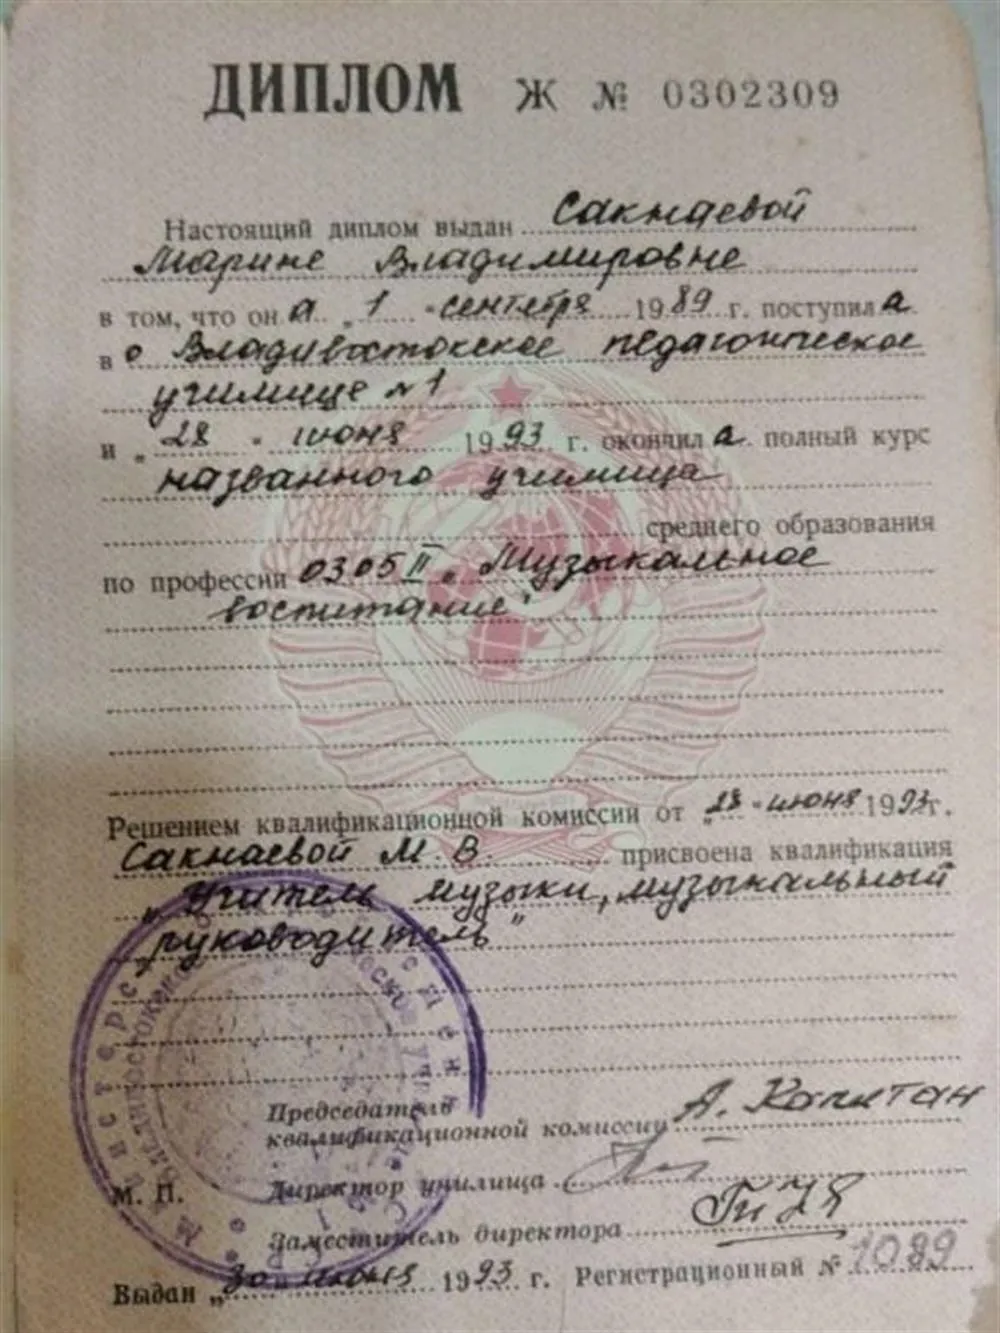 ДИПЛОМ Ж № 0302309
Настоящий диплом выдан Сакнаевой
Марине Владимировне
в том, что он а „1“ сентября 1989 г. поступил а
в о Владивостокское педагогическое
училище №1
и „28“ июня 1993 г. окончил а полный курс
названного училища
среднего образования
по профессии 0305 II „Музыкальное
воспитание"
Решением квалификационной комиссии от „28“ июня 1993 г.
Сакнаевой М. В. присвоена квалификация
„Учитель музыки, музыкальный
руководитель"
Председатель
квалификационной комиссии А. Капитан
М. П. Директор училища
Заместитель директора
Выдан „30“ июня 1993 г. Регистрационный № 1089